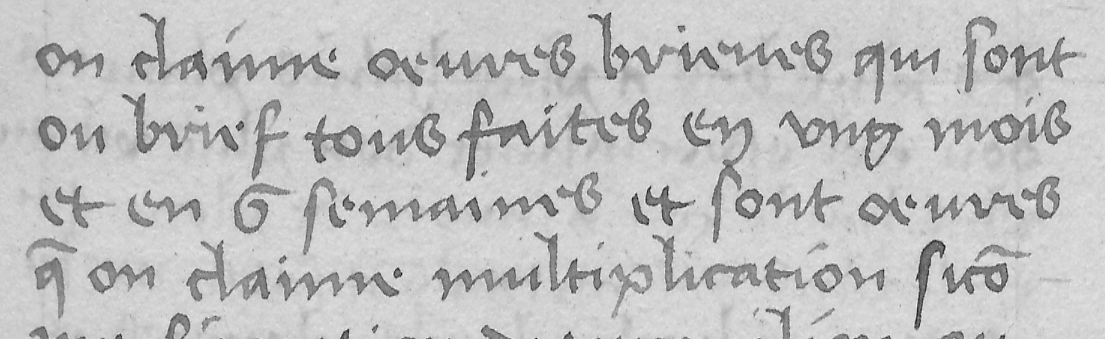 on claime oeuures brieues qui sont
ou brief tous faites en vng mois
et en 6 semaines et sont oeuures
q̄ on claime multiplication sicō